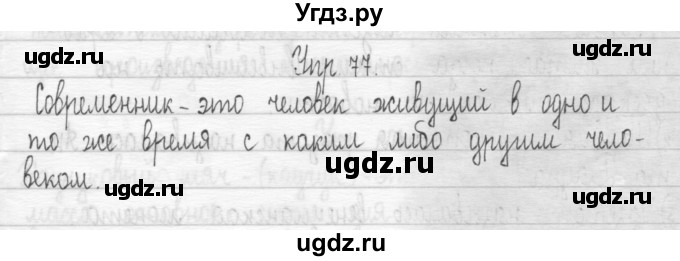 Угдз.ру
Упр 77.
Современник - это человек живущий в одно и
то же время с каким либо другим чело-
веком.
ugdz.ru ugdz.ru
ugdz.ru
ugdz.ru ugdz.ru
ugdz.ru